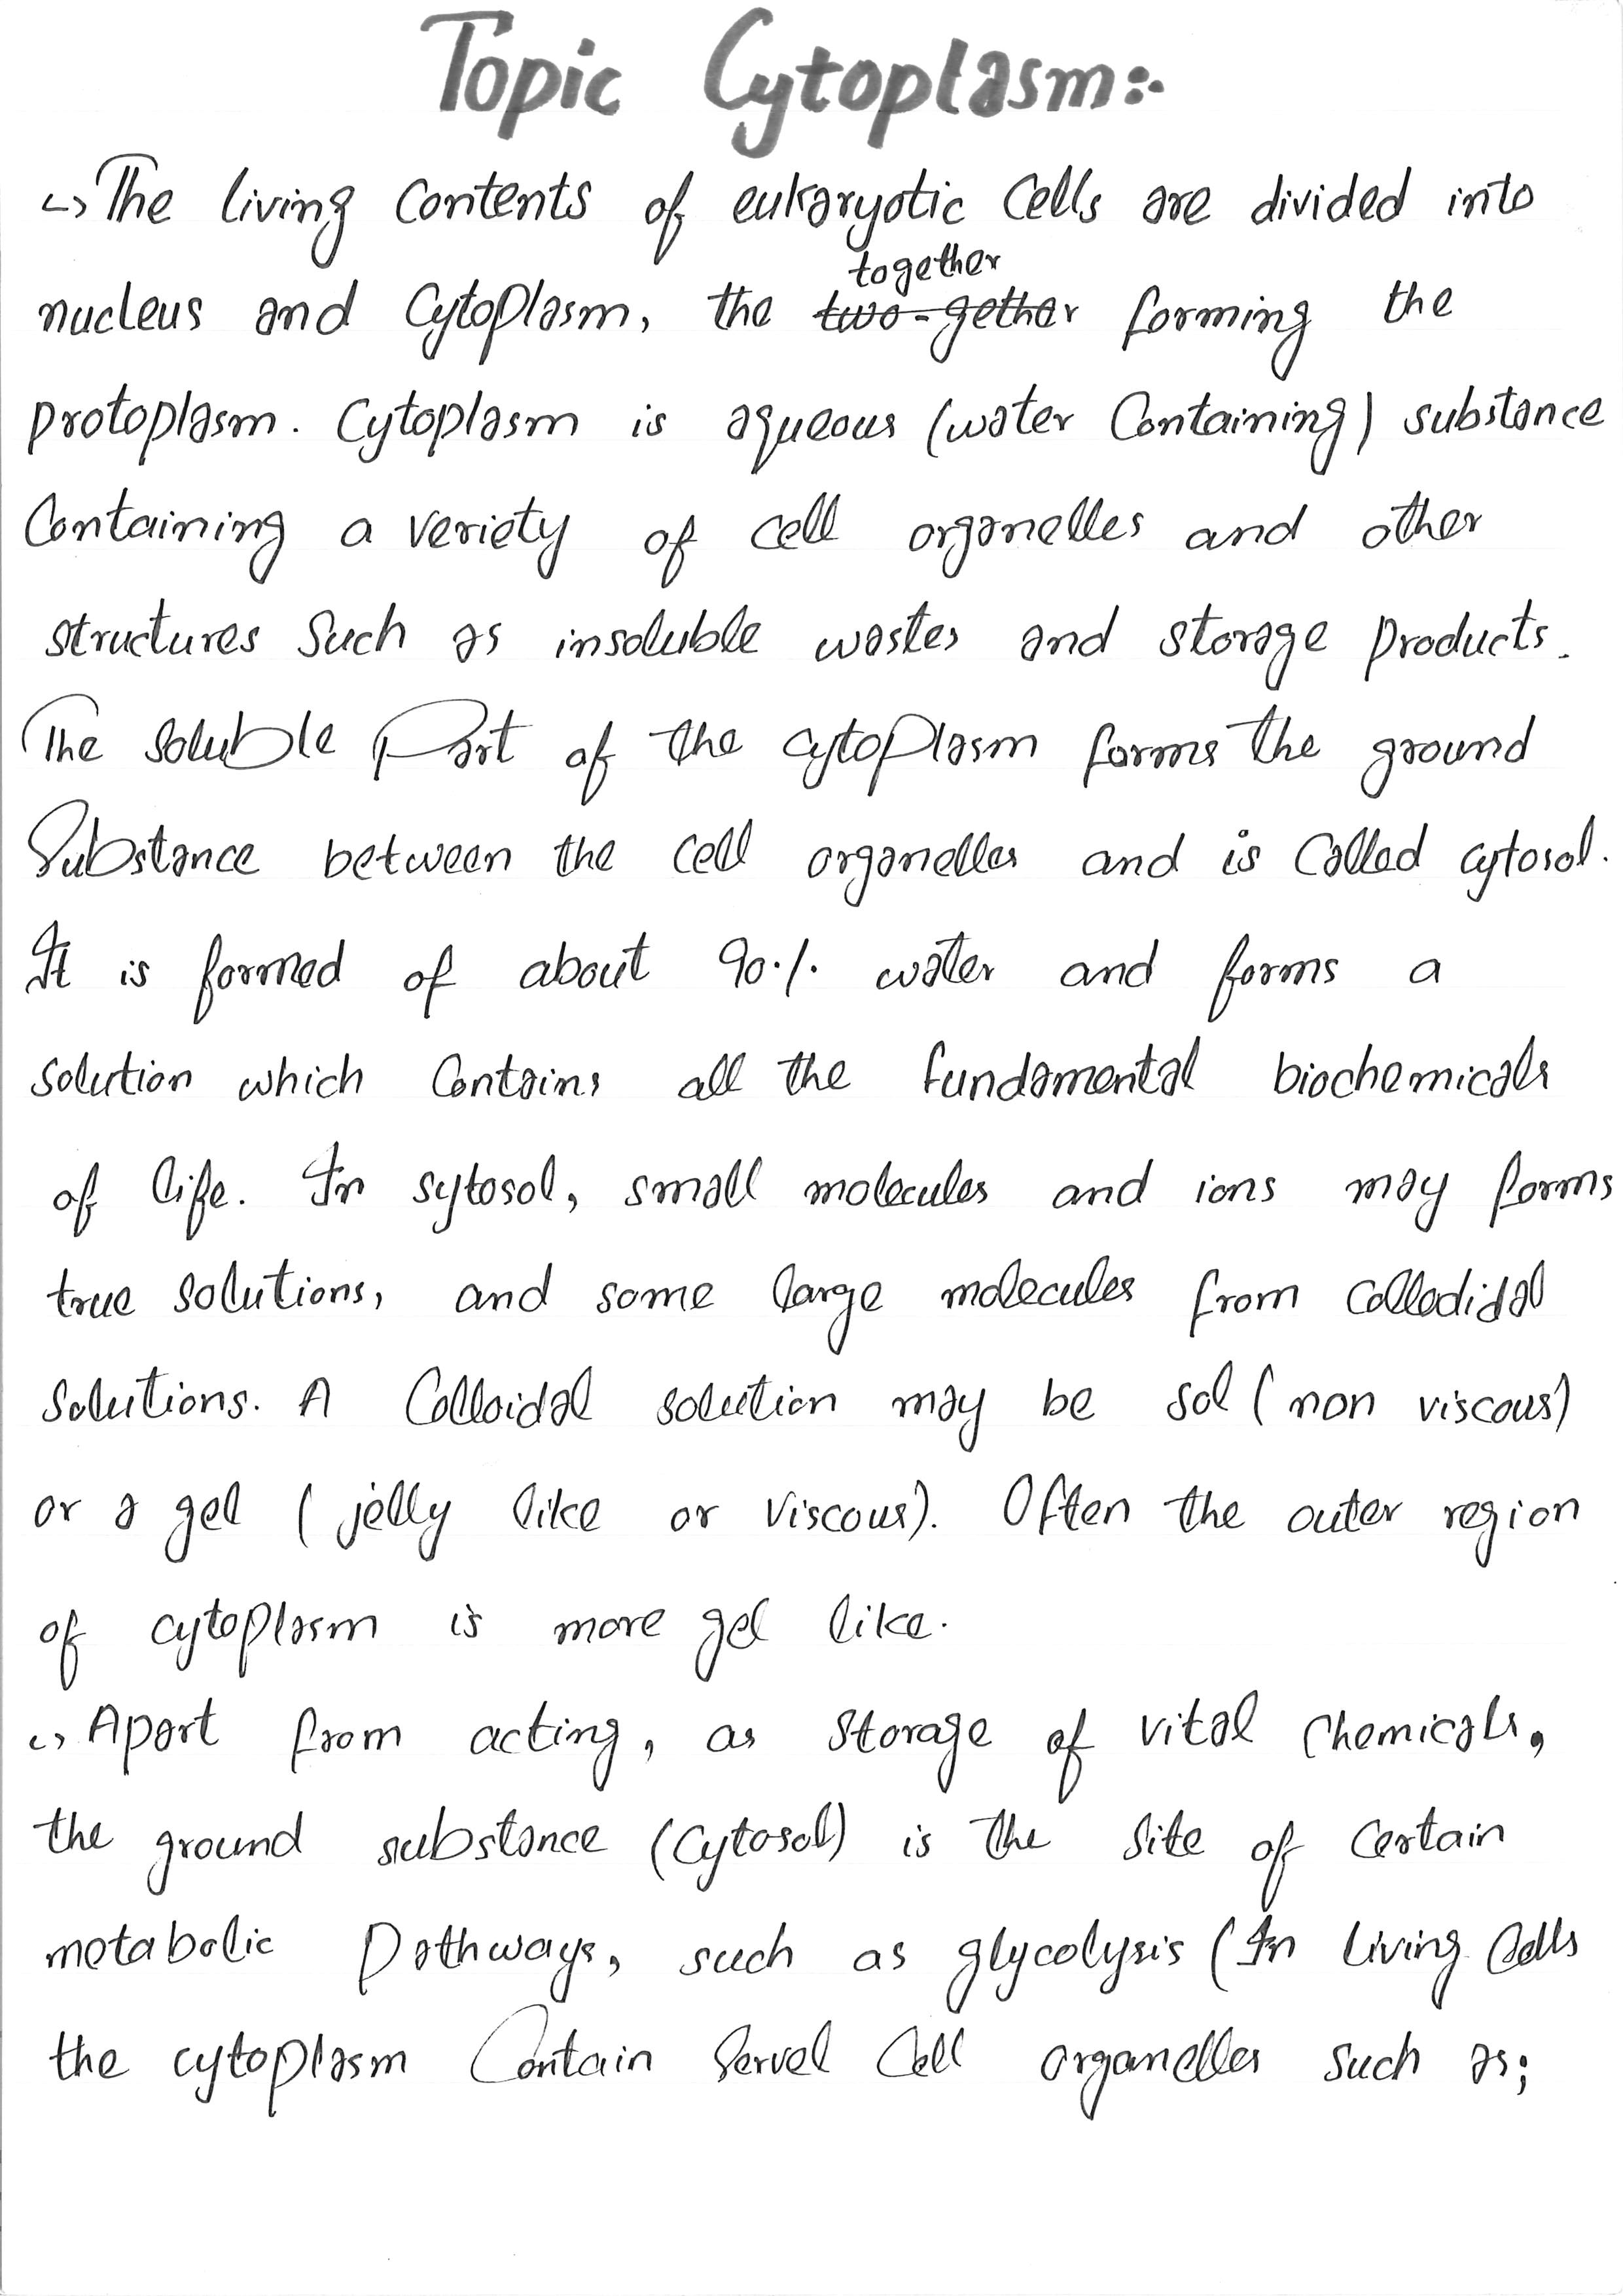 Topic Cytoplasm:-
↳ The living contents of eukaryotic cells are divided into
together
nucleus and Cytoplasm, the two-gether forming the
protoplasm. Cytoplasm is aqueous (water Containing) substance
Containing a veriety of cell organelles and other
structures such as insoluble wastes and storage products.
The soluble Part of the cytoplasm forms the ground
Substance between the cell organelles and is called cytosol.
It is formed of about 90% water and forms a
solution which contains all the fundamental biochemicals
of life. In sytosol, small molecules and ions may forms
true solutions, and some large molecules from collodidal
solutions. A Colloidal solution may be sol (non viscous)
or a gel (jelly like or viscous). Often the outer region
of cytoplasm is more gel like.
↳ Apart from acting, as storage of vital chemicals,
the ground substance (cytosol) is the site of certain
metabolic pathways, such as glycolysis (In living cells
the cytoplasm Contain servel Cell organelles such as;